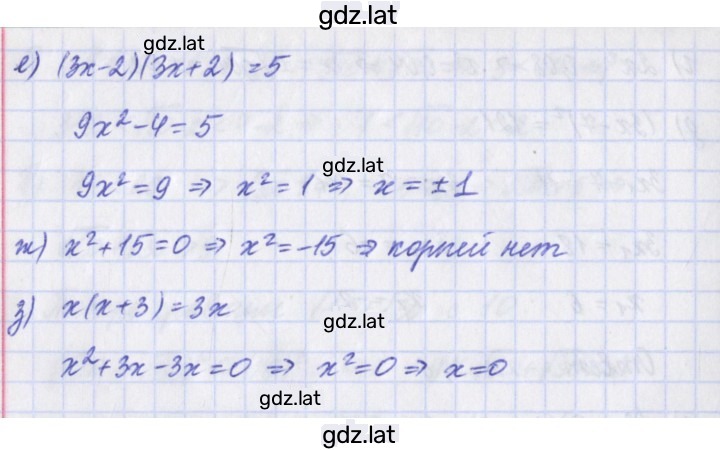 gdz.lat
gdz.lat
е) (3x-2)(3x+2) = 5
9x² - 4 = 5
gdz.lat
9x² = 9 ⇒ x² = 1 ⇒ x = ±1
ж) x² + 15 = 0 ⇒ x² = -15 ⇒ корней нет
з) x(x+3) = 3x
gdz.lat
x² + 3x - 3x = 0 ⇒ x² = 0 ⇒ x = 0
gdz.lat
gdz.lat